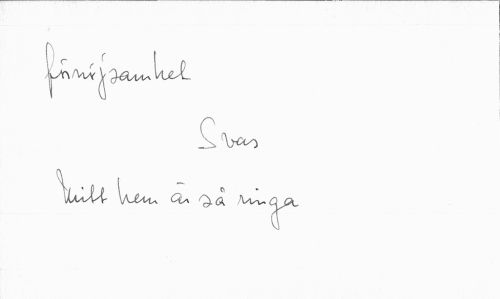 förnöjsamhet
Svas
Mitt hem är så ringa